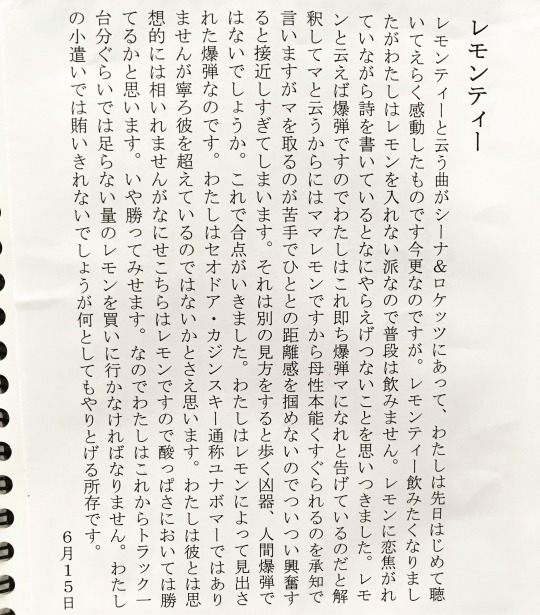 レモンティー
レモンティーと云う曲がシーナ&ロケッツにあって、わたしは先日はじめて聴
いてえらく感動したものです今更なのですが。レモンティー飲みたくなりまし
たがわたしはレモンを入れない派なので普段は飲みません。レモンに恋焦がれ
ていながら詩を書いているとなにやらえげつないことを思いつきました。レモ
ンと云えば爆弾ですのでわたしはこれ即ち爆弾マになれと告げているのだと解
釈してマと云うからにはママレモンですから母性本能くすぐられるのを承知で
言いますがマを取るのが苦手でひととの距離感を掴めないのでついつい興奮す
ると接近しすぎてしまいます。それは別の見方をすると歩く凶器、人間爆弾で
はないでしょうか。これで合点がいきました。わたしはレモンによって見出さ
れた爆弾なのです。わたしはセオドア・カジンスキー通称ユナボマーではあり
ませんが寧ろ彼を超えているのではないかとさえ思います。わたしは彼とは思
想的には相いれませんがなにせこちらはレモンですので酸っぱさにおいては勝
てるかと思います。いや勝ってみせます。なのでわたしはこれからトラック一
台分ぐらいでは足らない量のレモンを買いに行かなければなりません。わたし
の小遣いでは賄いきれないでしょうが何としてもやりとげる所存です。
6月15日